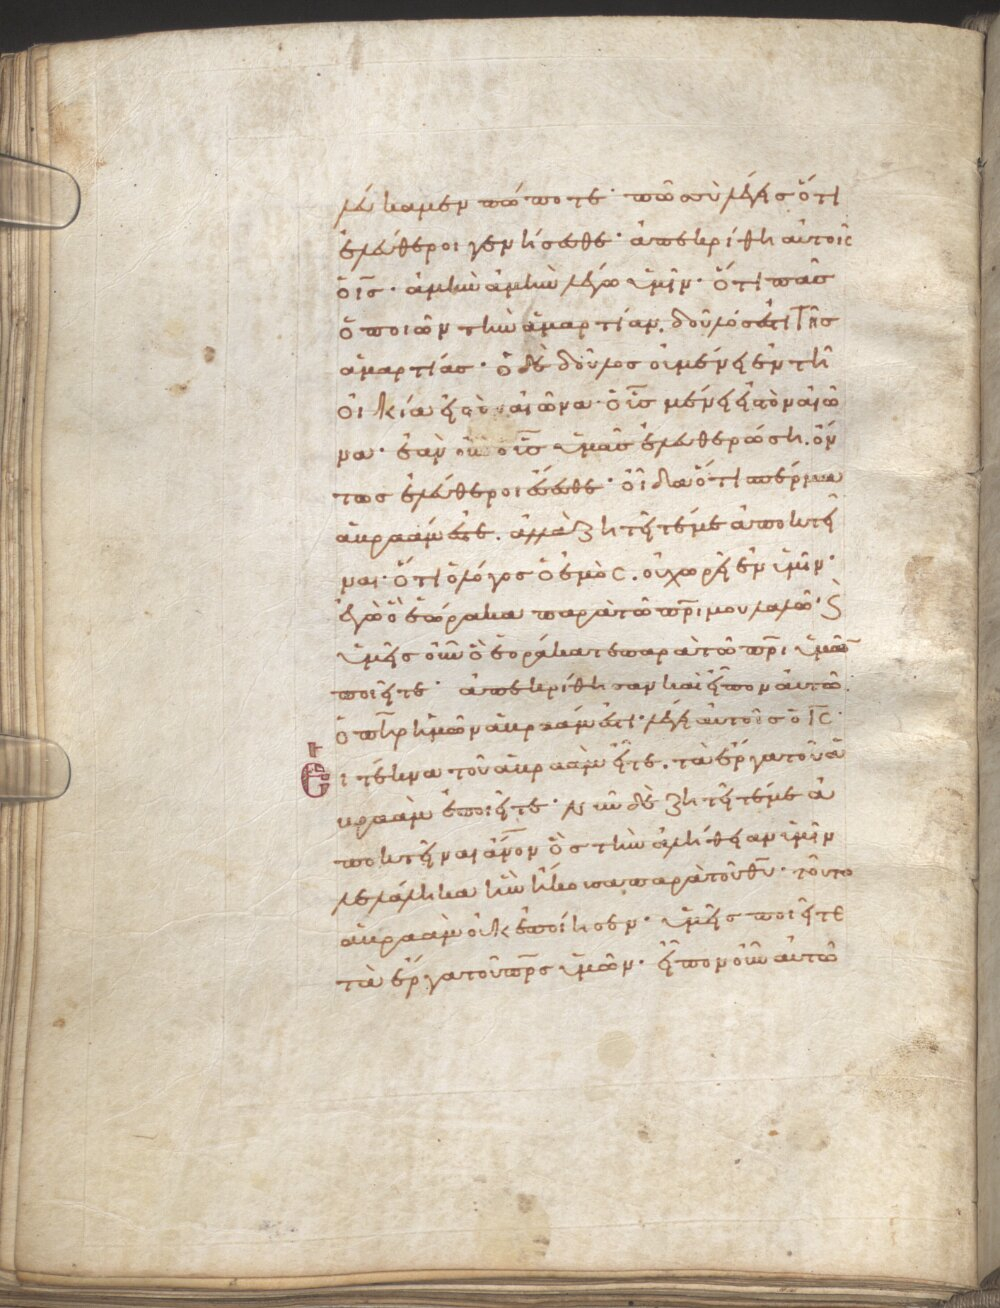 λεύκαμεν πώποτε· πῶς σὺ λέγεις ὅτι
ἐλεύθεροι γενήσεσθε· ἀπεκρίθη αὐτοῖς
ὁ ις̅· ἀμὴν ἀμὴν λέγω ὑμῖν· ὅτι πᾶς
ὁ ποιῶν τὴν ἁμαρτίαν. δοῦλός ἐστι τῆς
ἁμαρτίας· ὁ δὲ δοῦλος οὐ μένει ἐν τῆ
οἰκία εἰς τὸν αἰῶνα· ὁ υις̅ μένει εἰς τὸν αἰῶ
να· ἐὰν οὖν ὁ υις̅ ὑμᾶς ἐλευθερώση. ὄν
τως ἐλεύθεροι ἔσεσθε· οἶδα ὅτι σπέρμα
ἀβραάμ ἐστε. ἀλλὰ ζητεῖτέ με ἀποκτεῖ
ναι· ὅτι ὁ λόγος ὁ ἐμὸς. οὐ χωρεῖ ἐν ὑμῖν·
ἐγὼ ὃ ἑώρακα παρὰ τῶ πρι̅ μου λαλῶ· ϗ
ὑμεῖς οὖν ὃ ἑοράκατε παρὰ τῶ πρι̅ ὑμῶν
ποιεῖτε· ἀπεκρίθησαν καὶ εἶπον αὐτῶ.
ὁ πηρ̅ ἡμῶν ἀβραάμ ἐστι· λέγει αὐτοῖς ὁ ις̅·
ει τέκνα τοῦ ἀβραὰμ εἶτε. τὰ ἔργα τοῦ ἀ
βραὰμ ἐποιεῖτε· νῦν δὲ ζητεῖτέ με ἀ
ποκτεῖναι ανο̅ν ὃς τὴν ἀλήθειαν ὑμῖν
λελάληκα ἣν ἤκουσα παρὰ τοῦ θυ̅· τοῦτο
ἀβραὰμ οὐκ ἐποίησεν· ὑμεῖς ποιεῖτε
τὰ ἔργα τοῦ πρς̅ ὑμῶν· εἶπον οὖν αὐτῶ